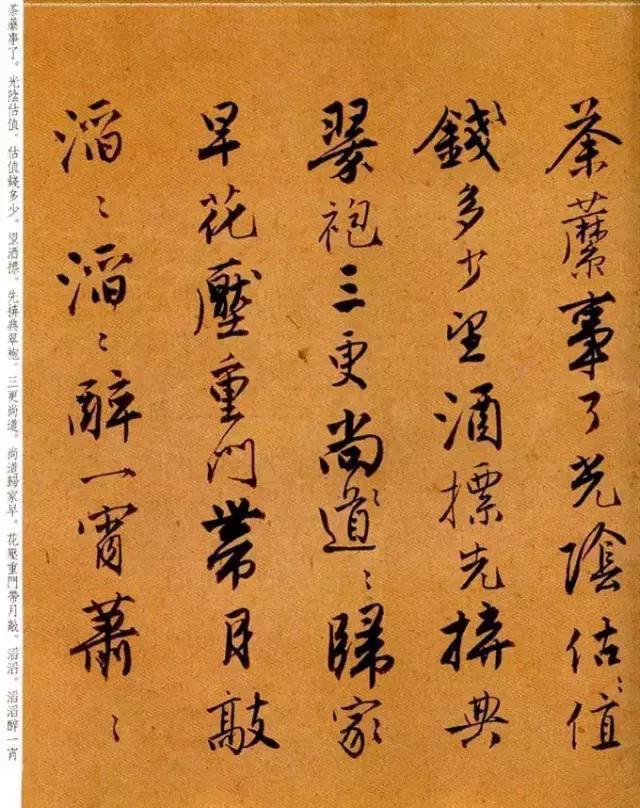 荼蘼事了光陰估〻值
錢多少望酒標先拚典
翠袍三更尚〻道〻歸家
早花壓重門帶月敲
滔〻滔〻醉一宵蕭〻
荼蘼事了。光陰估值。估值錢多少。望酒標。先拚典翠袍。三更尚道。尚道歸家早。花壓重門帶月敲。滔滔。滔滔醉一宵